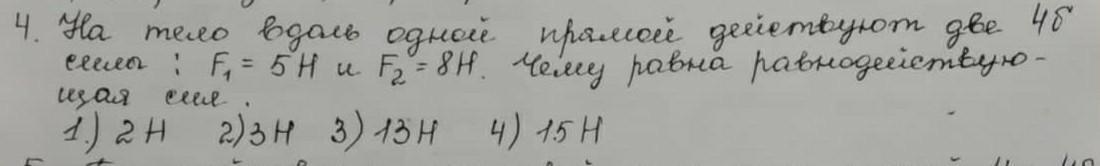 4. На тело вдоль одной прямой действуют две 4б
силы : F₁ = 5Н и F₂ = 8Н. Чему равна равнодействую-
щая сил.
1.) 2 Н 2) 3 Н 3) 13 Н 4) 15 Н